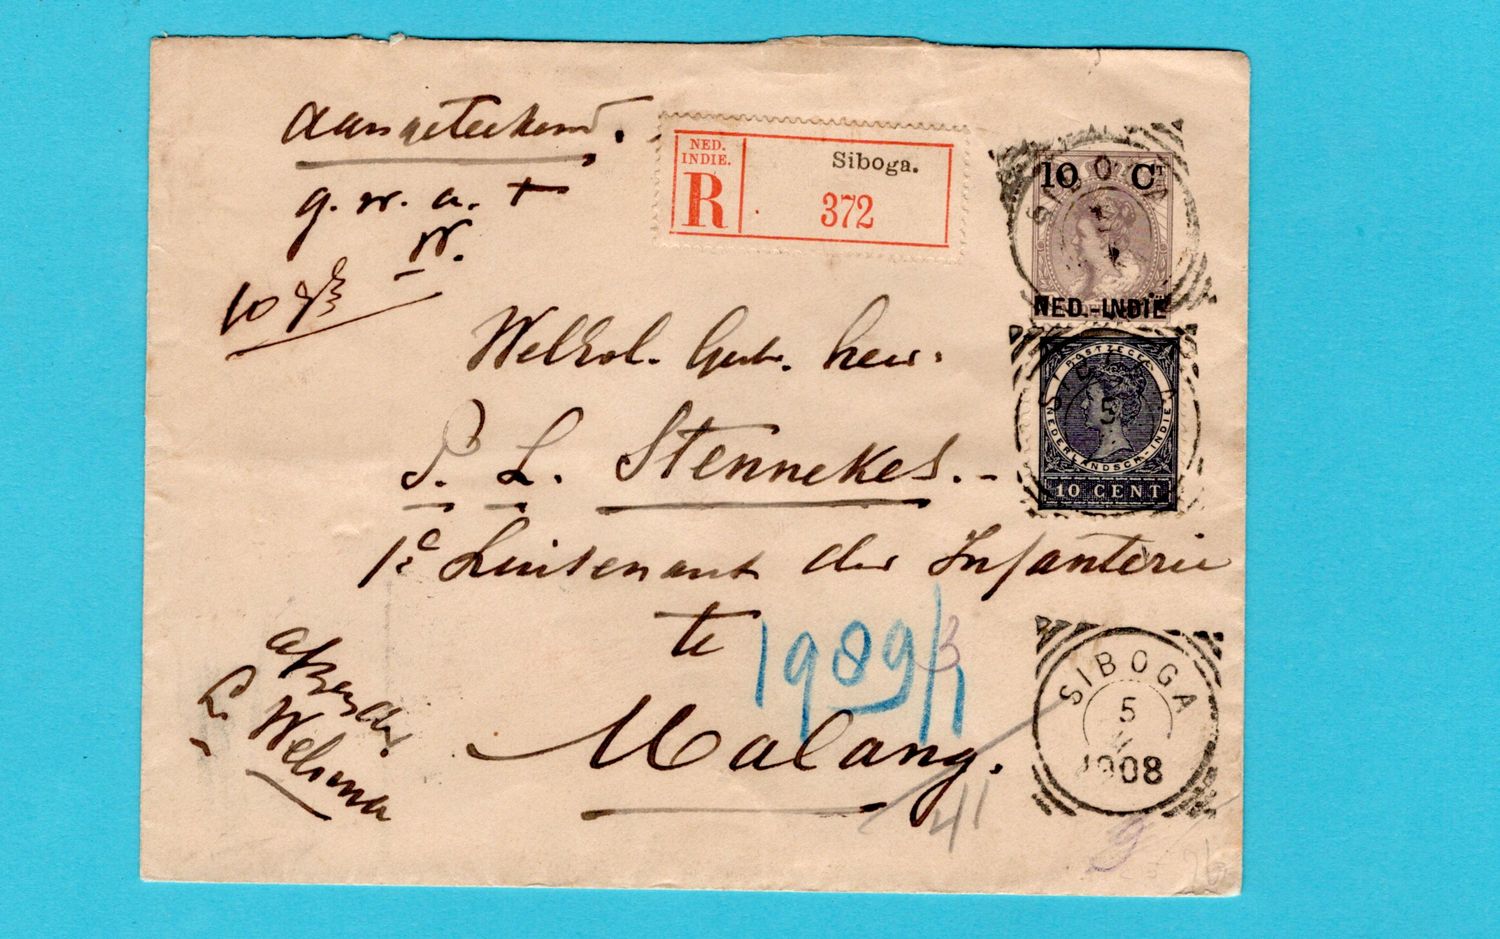 Aangeteekend.
g. w. a. t
W.
10
NED.
INDIE.
R
Siboga.
372
10 CT
SIBOGA
NED.-INDIË
POSTZEGEL
NEDERLANDSCH-INDIE
10 CENT
SIBOGA
5
Welhol. Geb. heer.
P. L. Stennekes.-
1e Luitenant der Infanterie
te
1989/1
3
Malang.
41
afzender
L. Welsma
SIBOGA
5
1908
9
26